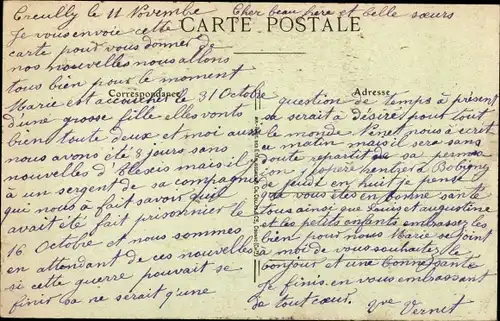 Creuilly le 11 Novembre
Cher beau frère et belle sœurs
CARTE POSTALE
Je vous envoie cette
carte pour vous donner de
nos nouvelles nous allons
tous bien pour le moment
Correspondance
Marie est accoucher le 31 Octobre
d'une grosse fille elles vonts
bien toute deux et moi aussi
nous avons été 8 jours sans
nouvelles d'Alexis mais il
à un sergent de sa compagnie
qui nous a fait savoir qu'il
avait été fait prisonnier le
16 Octobre et nous sommes
en attendant de ces nouvelles
si cette guerre pouvait se
finir ça ne serait q'une
Adresse
question de temps à présent
se serait à désirer pour tout
le monde nous à écrit
ce matin mais il sera sans
doute repartit de sa permission
j'espère rentrer à Bobigny
de jeudi en huit je pense
que vous êtes en bonne santé
tous ainsi que Louis et augustine
et les petits enfants embrassez les
bien pour nous Marie se joint
à moi de vous souhaiter le
bonjour et une bonne santé
Je finis en vous embrassant
de tout cœur.
Vve Vernet